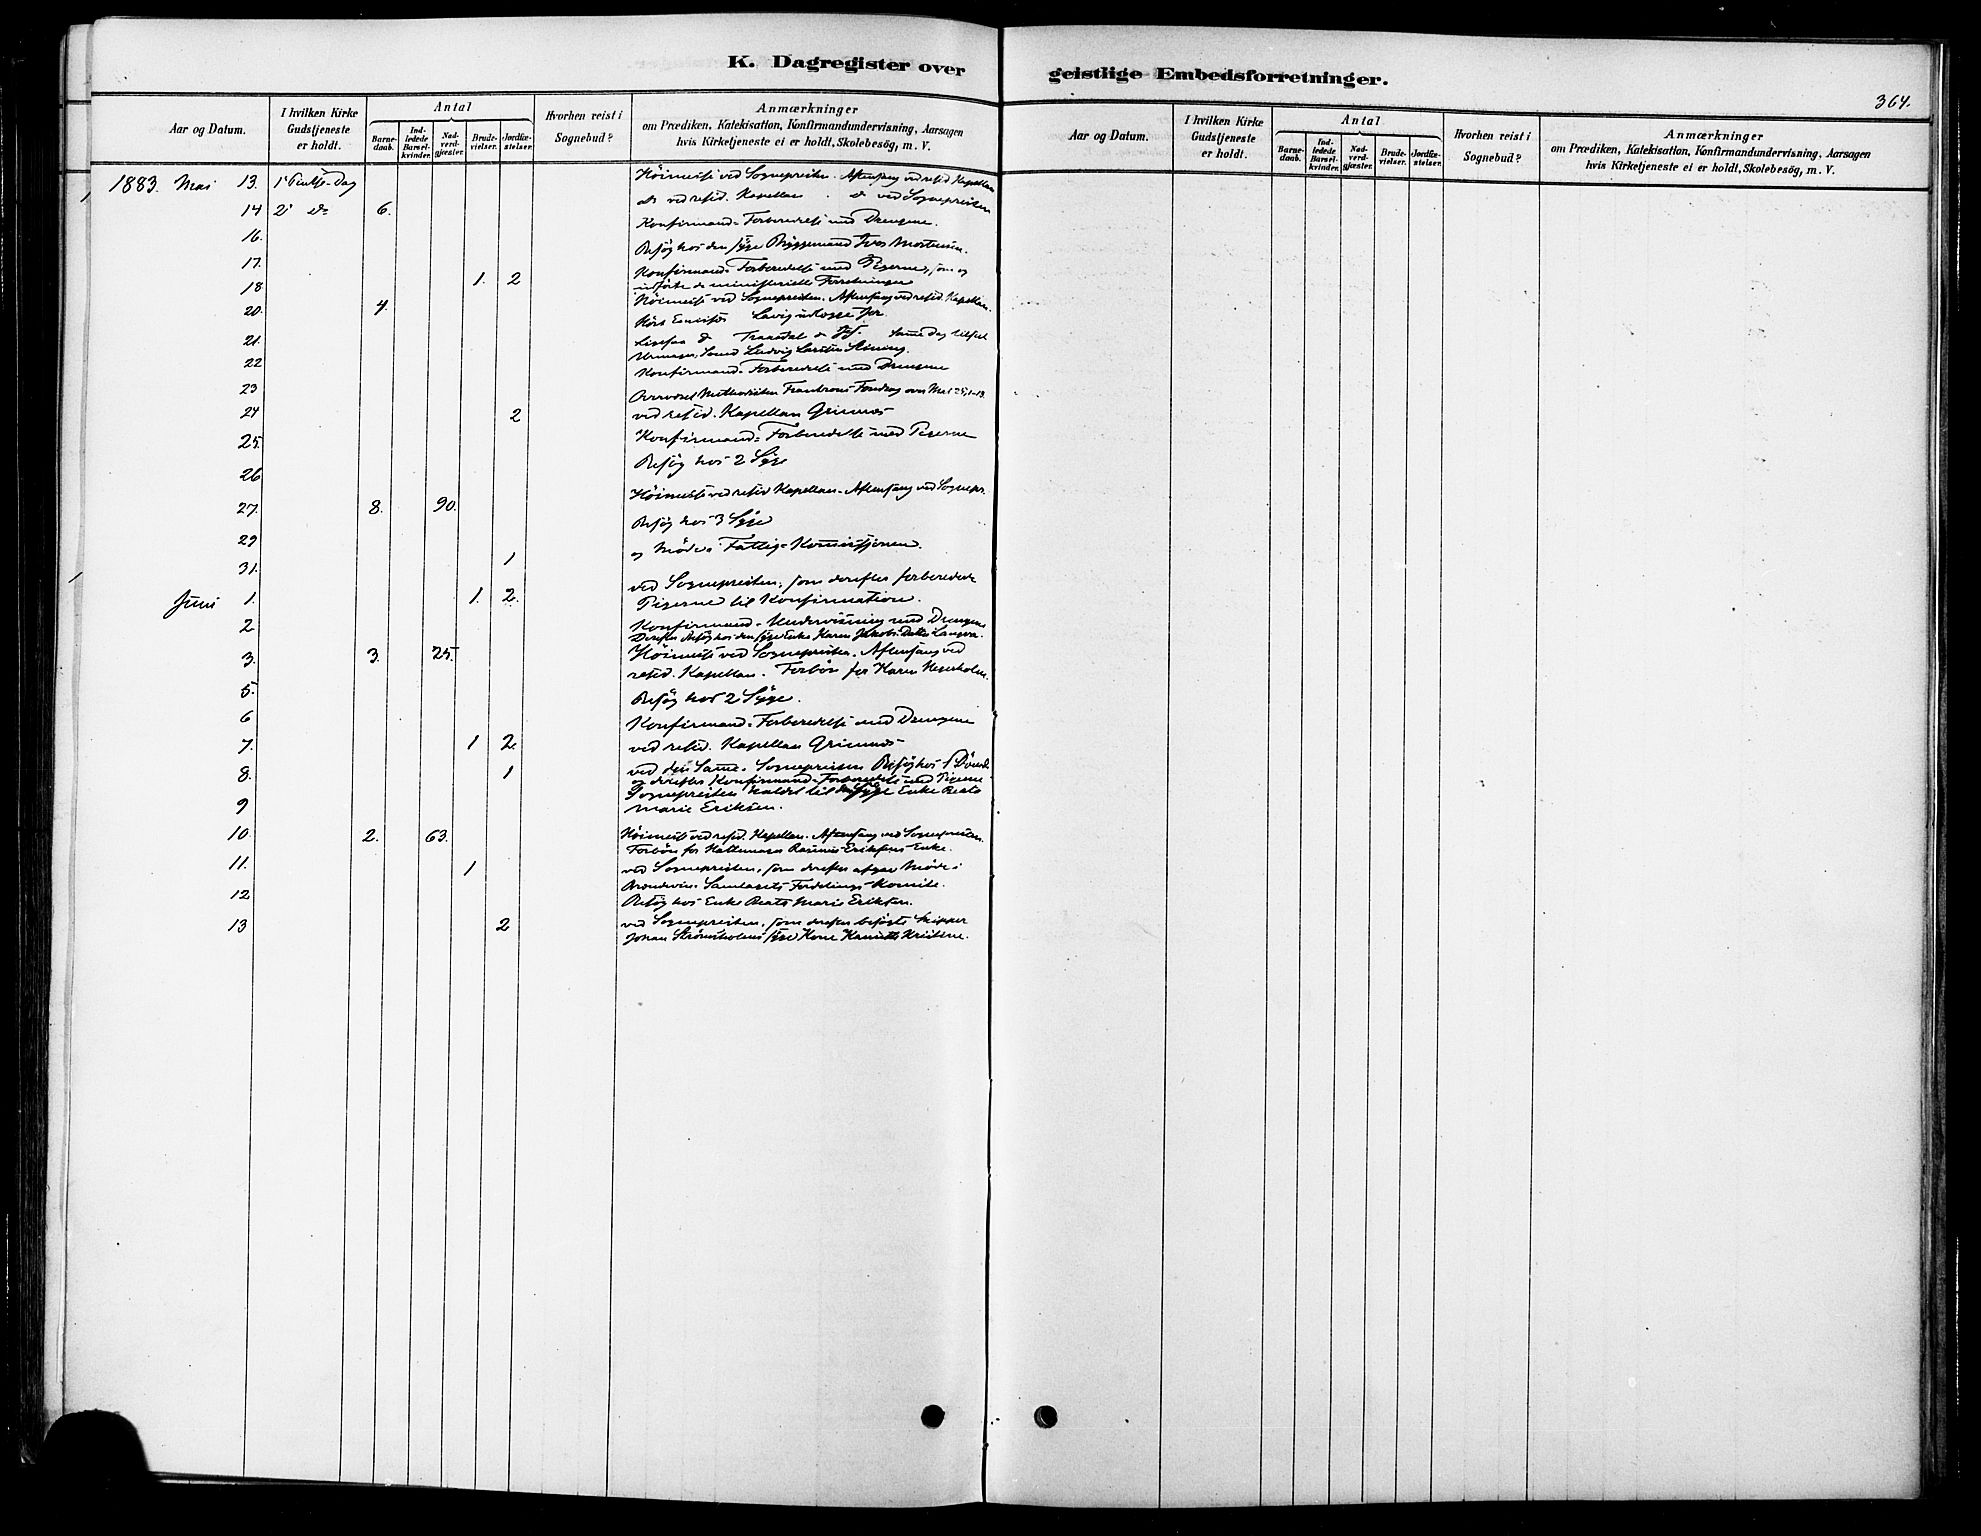 K. Dagregister over geistlige Embedsforretninger.
364.
Aar og Datum.
I hvilken Kirke Gudstjeneste er holdt.
Antal
Barne-daab.
Ind-ledede Barsel-kvinder.
Nad-verd-gjæster.
Brude-vielser.
Jordfæ-stelser.
Hvorhen reist i Sognebud?
Anmærkninger
om Prædiken, Katekisation, Konfirmandundervisning, Aarsagen
hvis Kirketjeneste ei er holdt, Skolebesög, m. V.
1883. Mai 13. 1ste Pintse-Dag Höimesse ved Sognepresten. Aftensang ved resid. Kapellan
14 2 do 6. do ved resid. Kapellan. do ved Sognepresten
16. Konfirmand-Forberedelse med Drengene.
17. Besög hos den syge Byggemand Iver Mortensen.
18 1. 2 Konfirmand-Forberedelse med Pigerne, som og
udförte de ministerielle Forretninger
20. 4. Höimesse ved Sognepresten. Aftensang ved resid. Kapellan.
21.
Samme Dag
22 Konfirmand-Forberedelse med Drengene
23 Overværet Methodisten Foredrag over
24 2 ved resid. Kapellan Grimnes
25. Konfirmand-Forberedelse med Pigerne
26 Besög hos 2 Syge
27. 8. 90. Höimesse ved resid Kapellan. Aftensang ved Sognepr.
29 Besög hos 3 Syge
31. 1 og Möde i Fattig-Kommissjonen.
Juni 1. 1. 2. ved Sognepresten, som derefter forberedede
Pigerne til Konfirmation.
2 Konfirmand-Undervisning med Drengene
Derefter Besög hos den syge Enke Karen
3. 3. 25. Höimesse ved Sognepresten. Aftensang ved
resid. Kapellan. Forbön for Karen
5. Besög hos 2 Syge.
6 Konfirmand-Forberedelse med Drengene
7. 1 2. ved resid. Kapellan Grimnes
8. 1 ved den Samme. Sognepresten Besög hos 1 Döende
og derefter Konfirmand-Forberedelse med Pigerne
9 Sognepresten kaldet til den syge Enke Beate
Marie Eriksen.
10. 2. 63. Höimesse ved resid. Kapellan. Aftensang ved Sognepresten.
Forbön for Rasmus Eriksens Enke.
11. 1 ved Sognepresten, som derefter afgav Möde i
Brændevins-Samlagets Fordelings-Komite.
12 Besög hos Enke Beate Marie Eriksen.
13 2 ved Sognepresten, som derefter besögte Skipper
Johan Strömsholms syge Kone Kristine.
Aar og Datum.
I hvilken Kirke Gudstjeneste er holdt.
Antal
Barne-daab.
Ind-ledede Barsel-kvinder.
Nad-verd-gjæster.
Brude-vielser.
Jordfæ-stelser.
Hvorhen reist i Sognebud?
Anmærkninger
om Prædiken, Katekisation, Konfirmandundervisning, Aarsagen
hvis Kirketjeneste ei er holdt, Skolebesög, m. V.